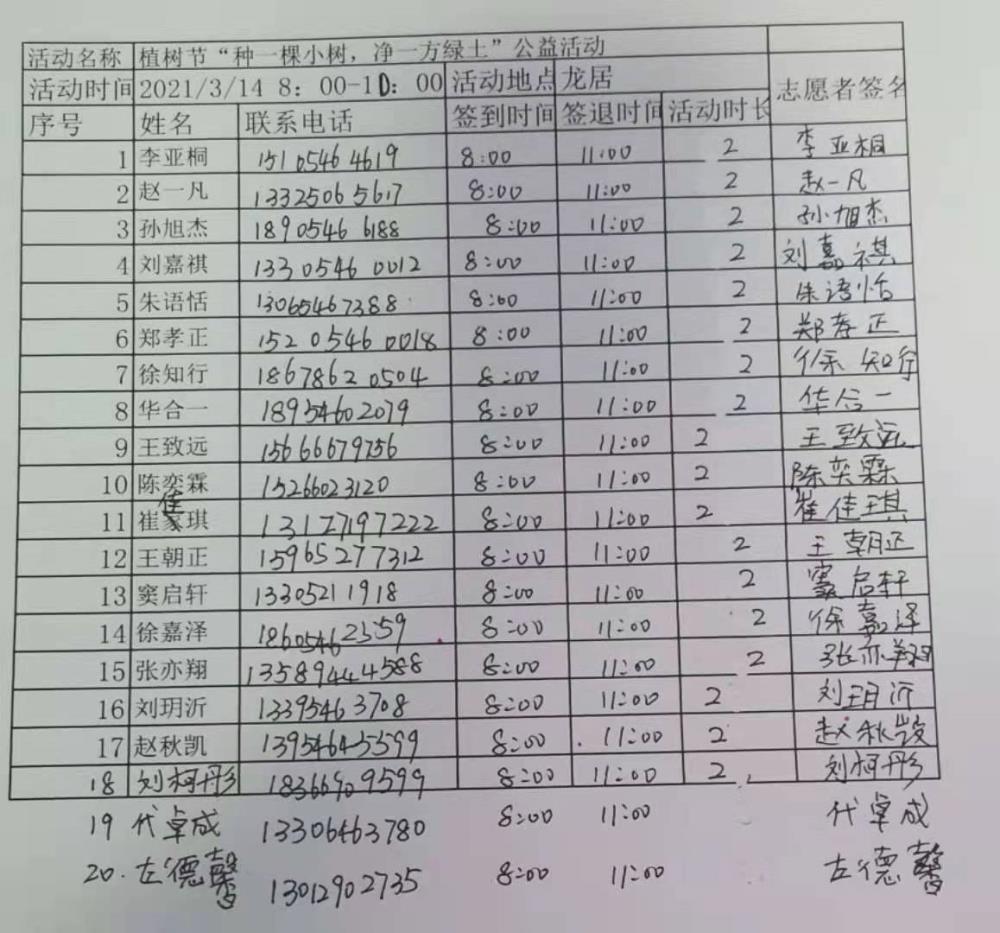 活动名称 植树节“种一棵小树，净一方绿土”公益活动
活动时间 2021/3/14 8：00-10：00 活动地点 龙居 志愿者签名
序号 姓名 联系电话 签到时间 签退时间 活动时长
1 李亚桐 15105464619 8:00 11:00 2 李亚桐
2 赵一凡 13325065617 8:00 11:00 2 赵一凡
3 孙旭杰 18905466188 8:00 11:00 2 孙旭杰
4 刘嘉祺 13305460012 8:00 11:00 2 刘嘉祺
5 朱语恬 13065467388 8:00 11:00 2 朱语恬
6 郑孝正 15205460018 8:00 11:00 2 郑孝正
7 徐知行 18678620504 8:00 11:00 2 徐知行
8 华合一 18954602079 8:00 11:00 2 华合一
9 王致远 15666679756 8:00 11:00 2 王致远
10 陈奕霖 15266023120 8:00 11:00 2 陈奕霖
11 崔佳琪 13127197222 8:00 11:00 2 崔佳琪
12 王朝正 15965277312 8:00 11:00 2 王朝正
13 窦启轩 13305211918 8:00 11:00 2 窦启轩
14 徐嘉泽 18605462559 8:00 11:00 2 徐嘉泽
15 张亦翔 13589444588 8:00 11:00 2 张亦翔
16 刘玥沂 13395463708 8:00 11:00 2 刘玥沂
17 赵秋凯 13954645599 8:00 11:00 2 赵秋凯
18 刘柯彤 18366909599 8:00 11:00 2 刘柯彤
19 代卓成 13306463780 8:00 11:00 代卓成
20. 左德馨 13012902735 8:00 11:00 左德馨